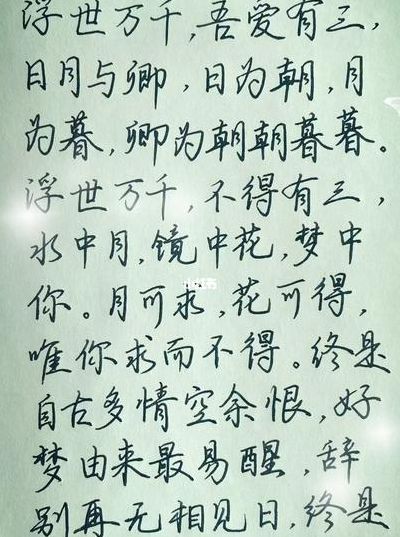 浮世万千，吾爱有三，
日月与卿，日为朝，月
为暮，卿为朝朝暮暮。
浮世万千，不得有三，
水中月，镜中花，梦中
小红书
你。月可求，花可得，
唯你求而不得。终是
自古多情空余恨，好
梦由来最易醒，辞
别再无相见日，终是